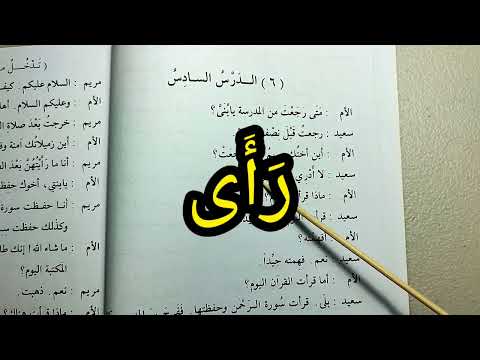 (٦) الـدَرْسُ السادِسُ
الأم : مَتَى رجَعْتَ من المدرسة يابُنَيَّ؟
سعيد : رجعتُ قَبْلَ نصْفِ
الأم : أين أختُك
سعيد : لا أَدْرِي
الأم : ماذا قرأ
سعيد : قرأت
الأم : أفهمته؟
سعيد : نعم. فهمته جيِّداً
الأم : أما قرأت القرآن اليوم؟
سعيد : بلَى. قرأت سورة الرَحْمٰن وحفظتها.
رَأَى
مريم : السلام عليكم. كيف
الأم : وعليكم السلام. أهلا
مريم : خرجتُ بَعْدَ صلاةِ ال
الأم : أين زميلاتك آمنة وف
مريم : أنا ما رَأَيْتُهُنَّ بعْدَ
الأم : يابنتي، أخوك حفِظ
مريم : أنـا حفظت سورة
وكذلك حفظت سور
الأم : ما شاء الله! إنك طا
المكتبة اليوم؟
مريم : نعم. ذهبت.